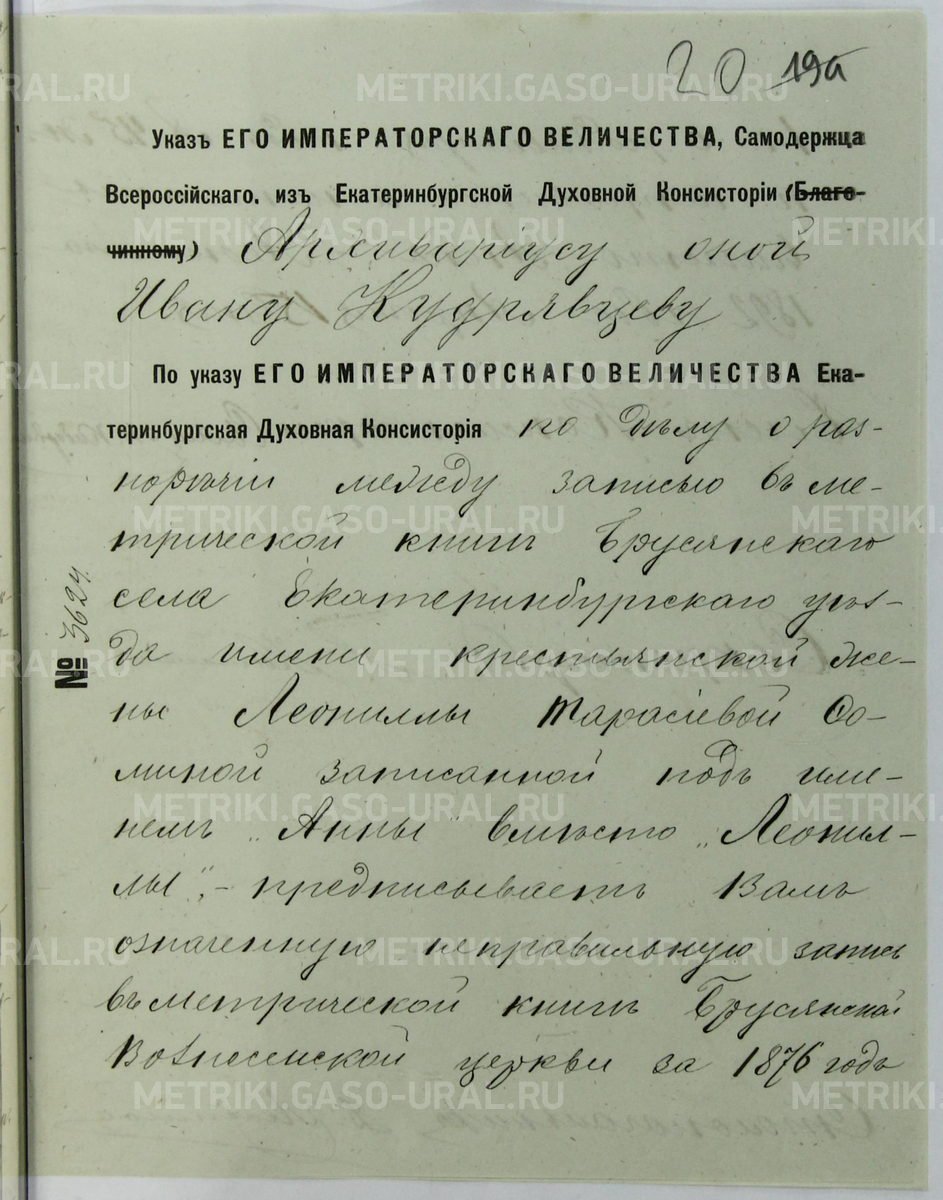 20 19а
Указъ ЕГО ИМПЕРАТОРСКАГО ВЕЛИЧЕСТВА, Самодержца
Всероссійскаго. изъ Екатеринбургской Духовной Консисторіи (Благо-
чинному) Архиваріусу оной
Ивану Кудрявцеву
По указу ЕГО ИМПЕРАТОРСКАГО ВЕЛИЧЕСТВА Ека-
теринбургская Духовная Консисторія по дѣлу о раз-
норѣчіи между записью въ ме-
трической книгѣ Брусянскаго
села Екатеринбургскаго уѣз-
да имени крестьянской же-
ны Леониллы Тарасіевой Ѳо-
миной записанной подъ име-
немъ „Анны" вмѣсто „Леонил-
лы",- предписываетъ Вамъ
означенную неправильную запись
въ метрической книгѣ Брусянской
Вознесенской церкви за 1876 годъ
№ 3624.
METRIKI.GASO-URAL.RU